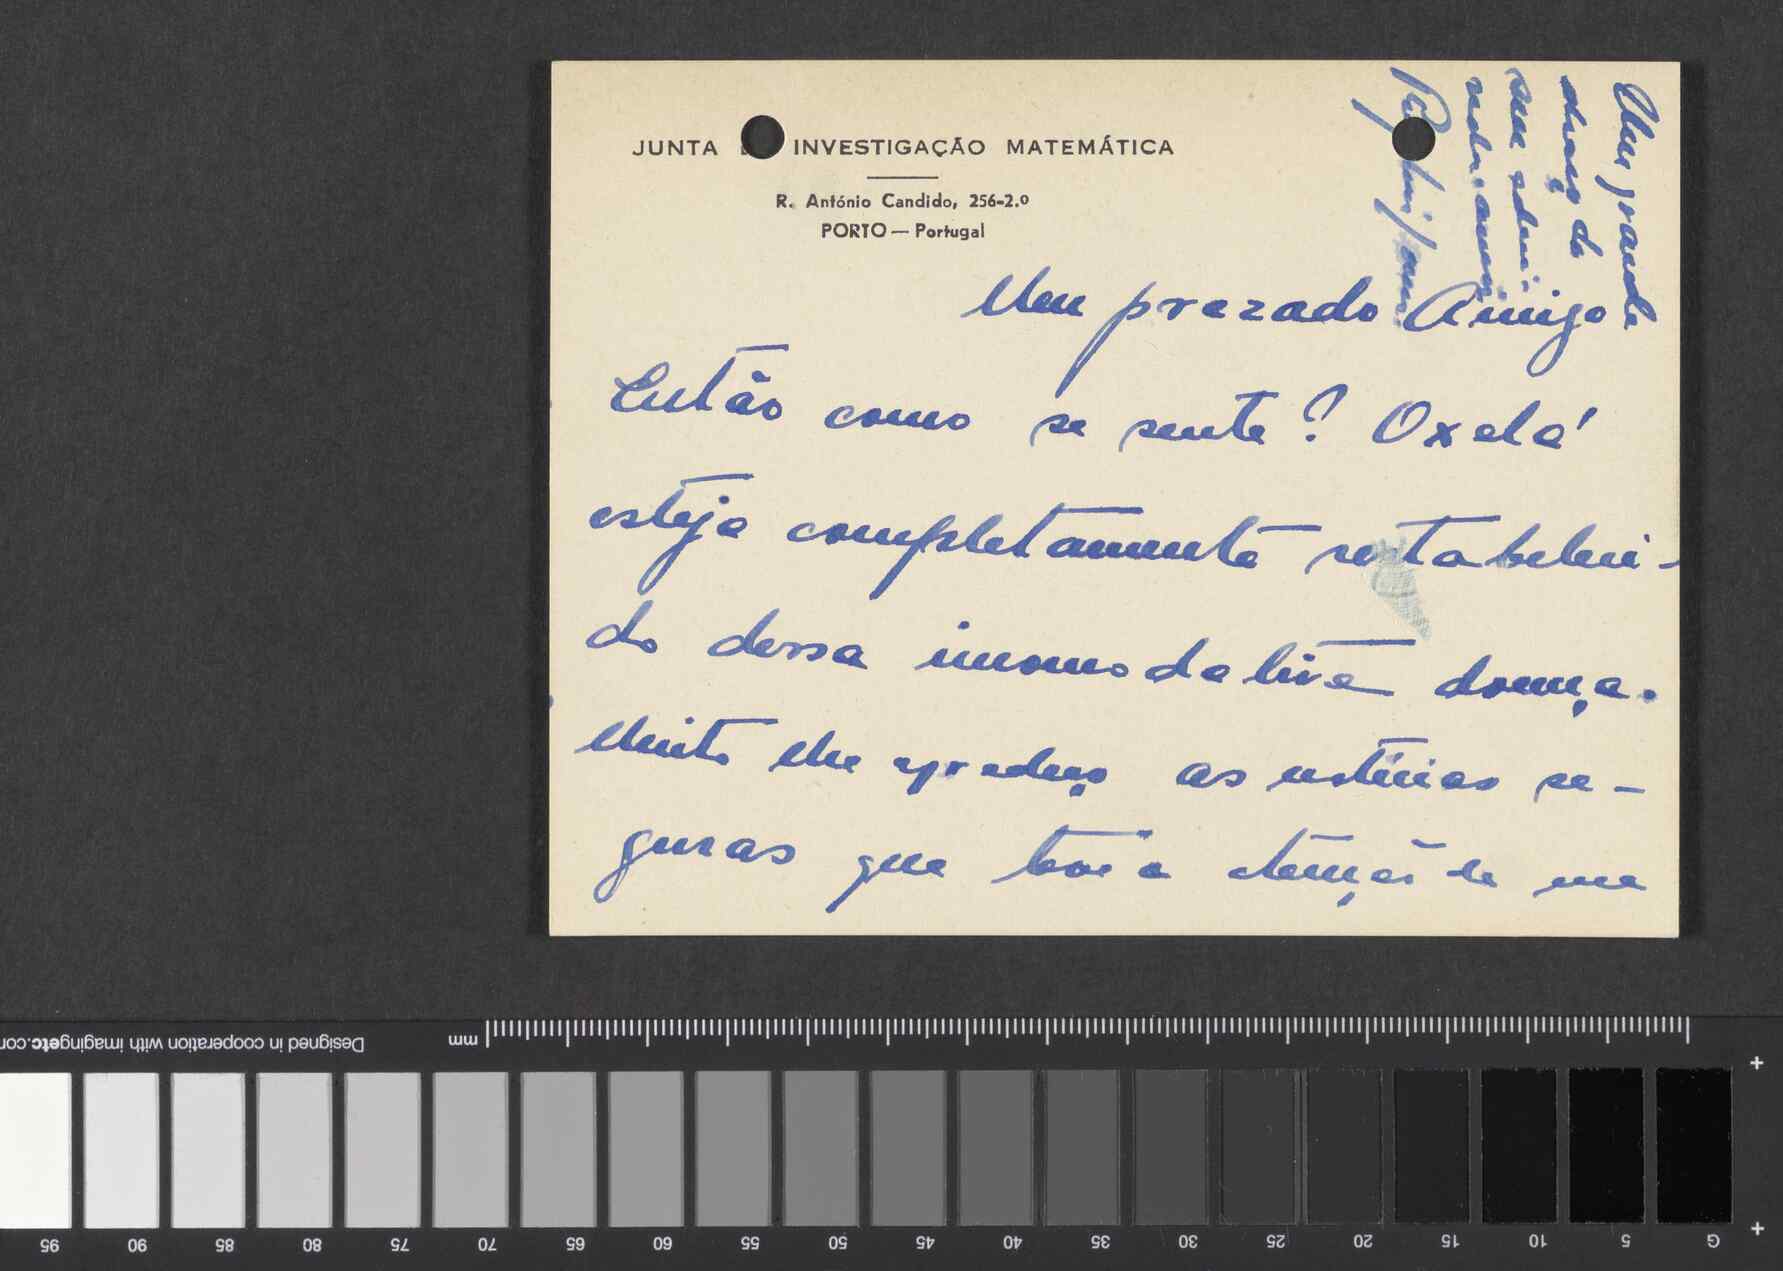 JUNTA INVESTIGAÇÃO MATEMÁTICA
R. António Candido, 256-2.º
PORTO — Portugal
Meu prezado Amigo
Então como se sente? Oxalá
esteja completamente restabeleci-
do dessa incomodativa doença.
Muito lhe agradeço as notícias se-
guras que teve a atenção de me
Um grande
abraço do
seu
admor. amigo
Designed in cooperation with imagingetc.com
mm
95 90 85 80 75 70 65 60 55 50 45 40 35 30 25 20 15 10 5 G